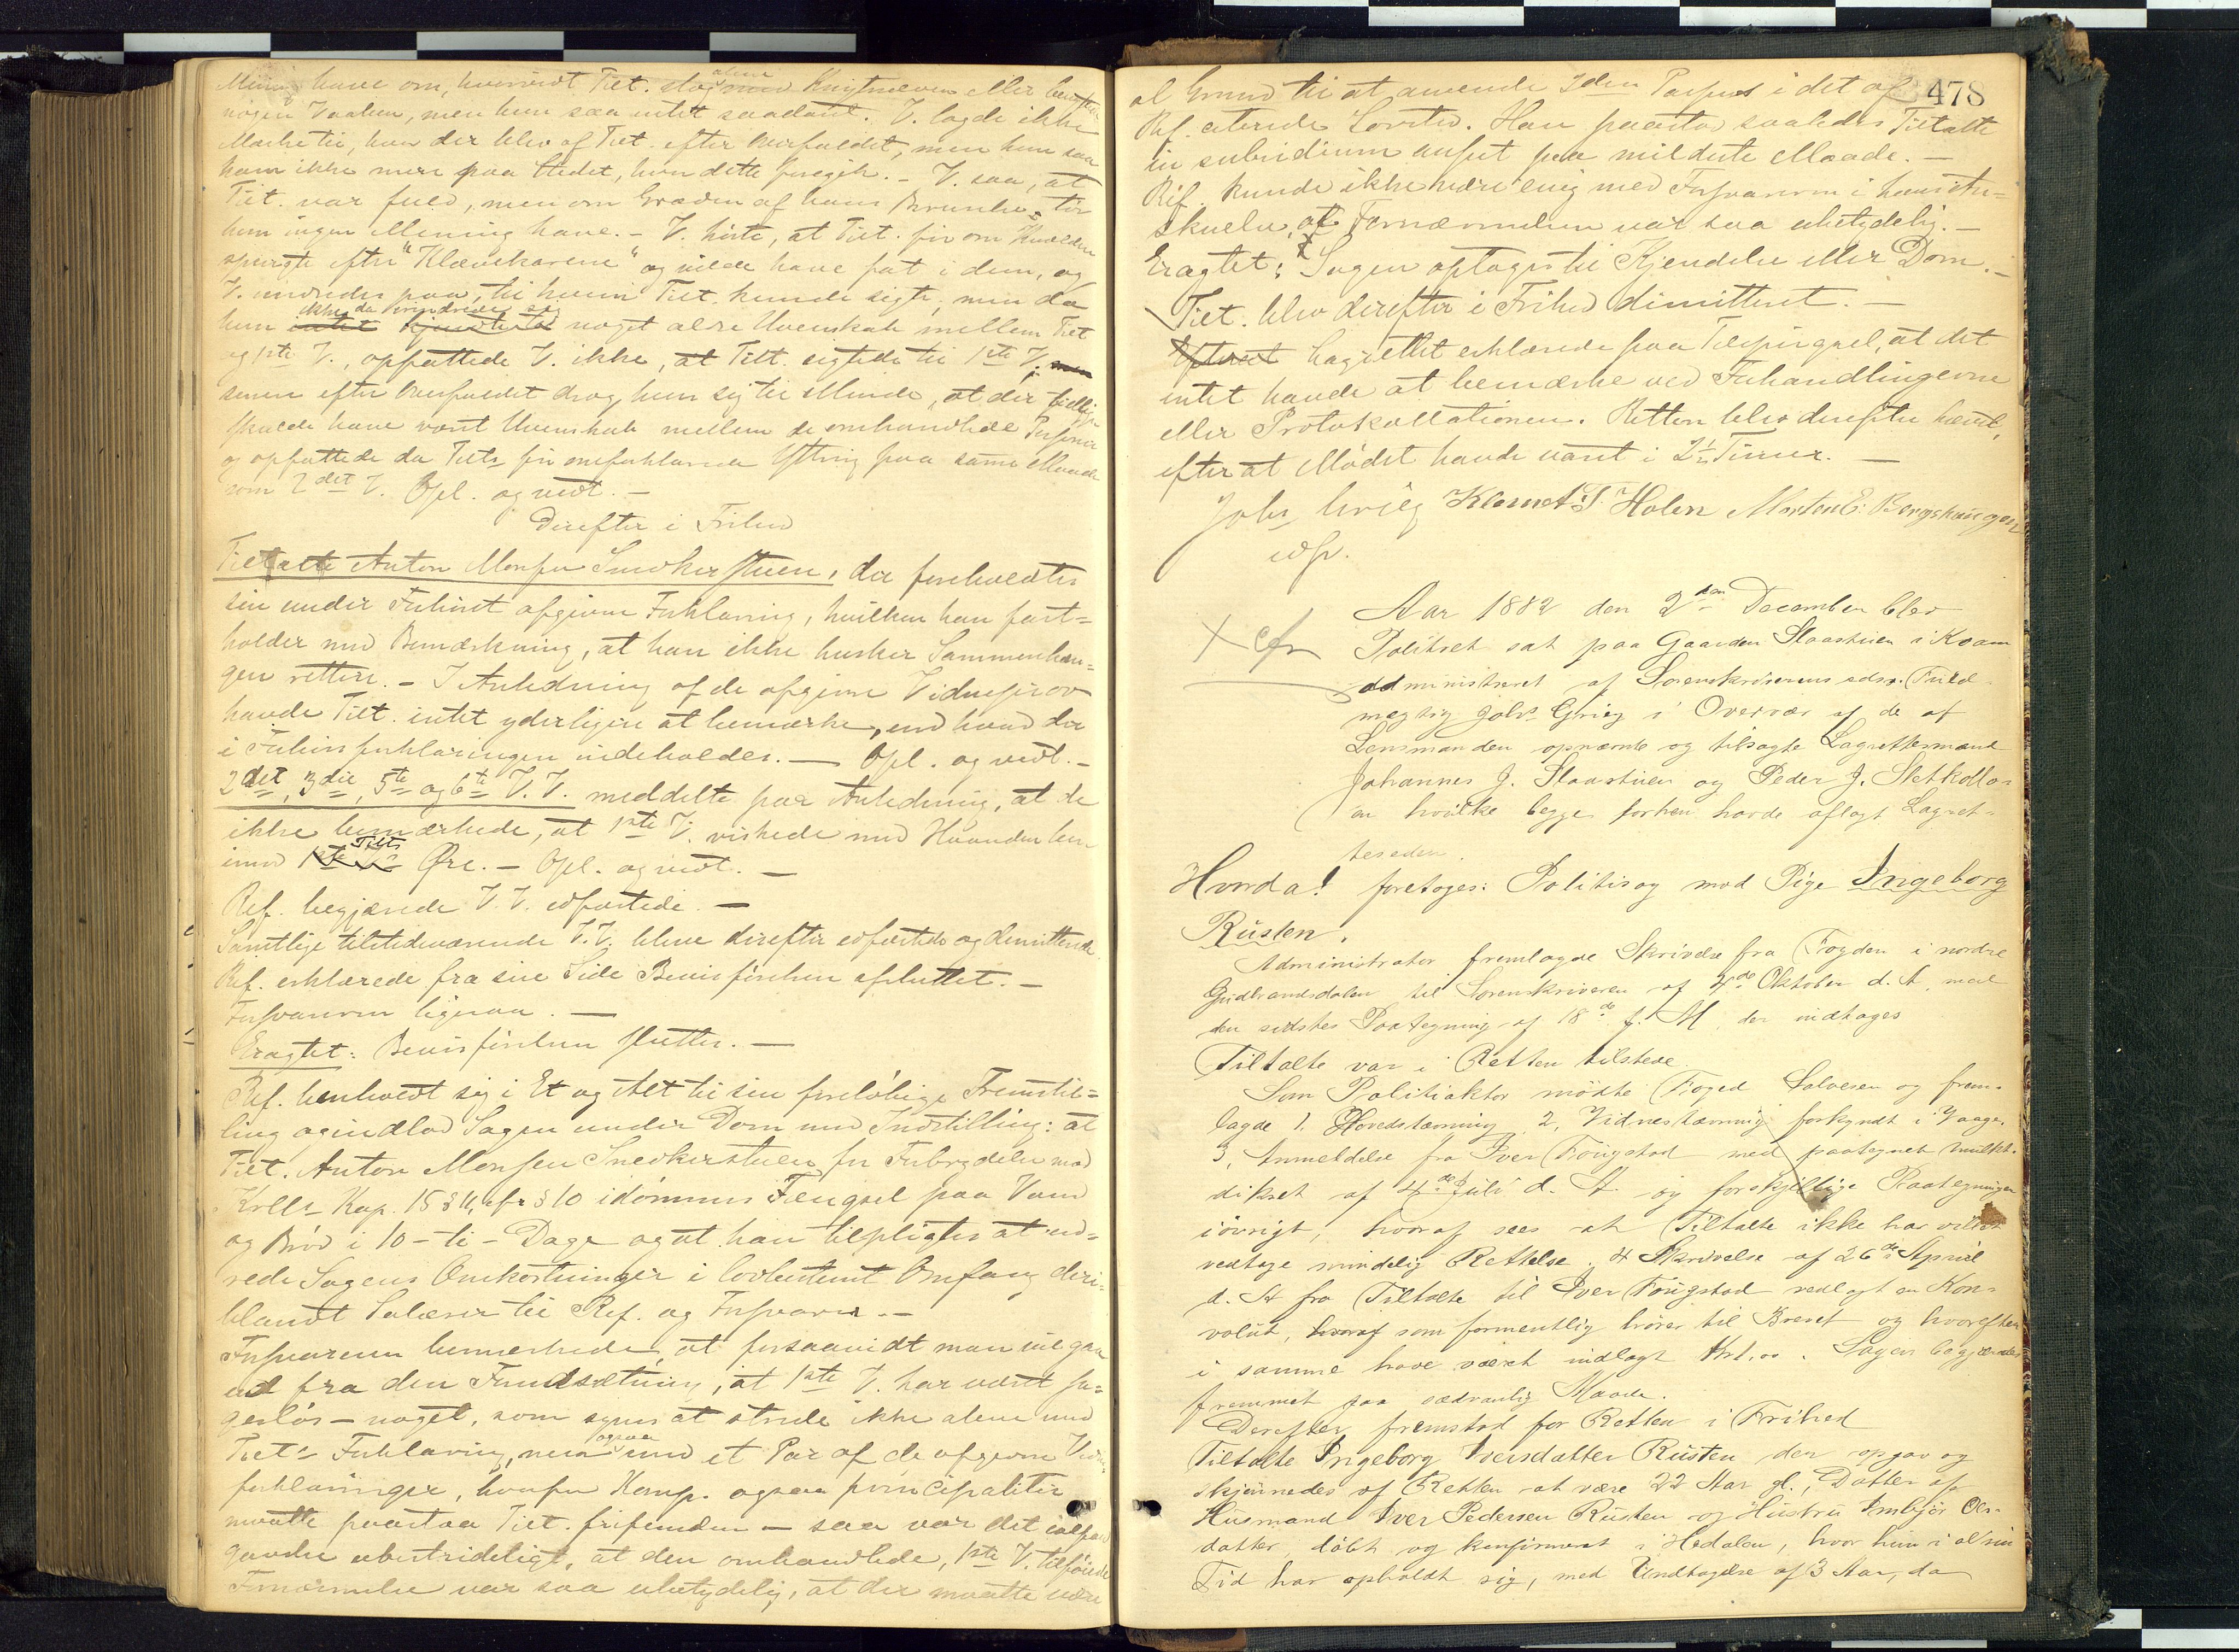 Mening have om, hvorvidt Tilt. slog alene med Knytnæven eller benyttede
nogen Vaaben, men hun saa intet saadant. V. lagde ikke
Mærke til, hvor der blev af Tilt. efter Overfaldet, men hun saa
ham ikke mere paa Stedet, hvor dette foregik. – V. saa, at
Tilt. var fuld, men om Graden af hans Beruselse tør
hun ingen Mening have. – V. hørte, at Tilt. før om Kvælden
spurgte efter "Klævekarene" og vilde have fat i dem, og
V. undredes paa, til hvem Tilt. kunde sigte, men da
hun intet ikke da erindrede sig noget ældre Uvenskab mellem Tilt
og 1ste V., opfattede V. ikke, at Tilt. sigtede til 1ste V.; men
senere efter Overfaldet drog hun sig til Minde, at der tidligere
skulde have været Uvenskab mellem de omhandlede Personer
og opfattede da Tilts før omforklarede Yttring paa samme Maade
som 2det V. Opl. og vedt. –
Derefter i Frihed
Tiltalte Anton Monsen Snedkerstuen, der foreholdtes
sin under Forhøret afgivne Forklaring, hvilken han fast=
holder med Bemærkning, at han ikke husker Sammenhæn=
gen rettere. – I Anledning af de afgivne Vidneprov
havde Tilt. intet yderligere at bemærke, end hvad der
i Forhørsforklaringen indeholdes. – Opl. og vedt. –
2det, 3die, 5te og 6te V. V. meddelte paa Anledning, at de
ikke bemærkede, at 1ste V. viskede med Haanden hen
imod 1ste V's Tilts Øre. – Opl. og vedt. –
Ref. begjærede V. V. edfæstede. –
Samtlige tilstedeværende V. V. bleve derefter edfæstede og demitterede
Ref. erklærede fra sin Side Bevisførelsen afsluttet. –
Forsvareren ligesaa. –
Eragtet: Bevisførelsen sluttes. –
Ref. henholdt sig i Et og Alt til sin foreløbige Fremstil=
ling og indlod Sagen under Dom med Indstilling: at
Tilt. Anton Monsen Snedkerstuen for Forbrydelse mod
Krlls Kap. 15 § 11, cfr § 10 idømmes Fængsel paa Vand
og Brød i 10 – ti – Dage og at han tilpligtes at ud=
rede Sagens Omkostninger i lovbestemt Omfang deri=
blandt Salærer til Ref. og Forsvarer. –
Forsvareren bemerkede, at forsaavidt man vil gaa
ud fra den Forudsætning, at 1ste V. har været sa=
gesløs – noget, som synes at stride ikke alene mod
Tilt's Forklaring, men ogsaa mod et Par af de afgivne Vidne
forklaringer, hvorfor Komp. ogsaa principaliter
maatte paastaa Tilt. frifunden – saa var det ialfald
ganske ubestrideligt, at den omhandlede, 1ste V. tilføiede
Fornærmelse var saa ubetydelig, at der maatte være
478
al Grund til at anvende 2den Passus i det af
Ref. citerede Lovsted. Han paastod saaledes Tiltalte
in subsidium anseet paa mildeste Maade. –
Ref. kunde ikke være enig med Forsvareren i hans An=
skuelse, at Fornærmelsen var saa ubetydelig. –
Eragtet: Sagen optages til Kjendelse eller Dom. –
Tilt. blev derefter i Frihed dimitteret. –
Efterat Lagrettet erklærede paa Tilspørgsel, at det
intet havde at bemærke ved Forhandlingerne
eller Protokollationen. Retten blev derefter hævet,
efter at Mødet havde varet i 2½ Timer. –
Johs Grieg Klemet T. Holen Morten E. Bergshaugen
edsv.
+ cfr
Aar 1882 den 2den December blev
Politiret sat paa Gaarden Slaastuen i Kvam
administreret af Sorenskriverens edsv. Fuld=
mægtig Johs Grieg i Overvær af de af
Lensmanden opnævnte og tilsagte Lagrettesmænd
Johannes J. Slaastuen og Peder J. Sletkollo=
en hvilke begge forhen havde aflagt Lagret=
teseden.
Hvorda! foretoges: Politisag mod Pige Ingeborg
Rusten.
Administrator fremlagde Skrivelse fra Fogden i nordre
Gudbrandsdalen til Sorenskriveren af 4de Oktober d. A. med
den sidstes Paategning af 18de f. M. der indtages
Tiltalte var i Retten tilstede
Som Politiaktor mødte Foged Salvesen og frem=
lagde 1. Hovedstævning 2, Vidnestævning forkyndt i Vaage.
3, Anmeldelse fra Iver Fougstad med paategnet Mulkt=
dikret af 4de Juli d. A. og forskjellige Paategninger
iøvrigt, hvoraf sees at Tiltalte ikke har villet
vedtage mindelig Rettelse. 4 Skrivelse af 26de April
d. A fra Tiltalte til Iver Fougstad vedlagt en Kon=
volut, hvoraf som formentlig hører til Brevet og hvorefter
i samme have været indlagt Kr 1,00. Sagen begjæredes
fremmet paa sædvanlig Maade.
Derefter fremstod for Retten i Frihed
Tiltalte Ingeborg Iversdatter Rusten der opgav og
skjønnedes af Retten at være 22 Aar gl., Datter af
Husmand Iver Pedersen Rusten og Hustru Embjør Ols=
datter, døbt og konfirmeret i Hedalen, hvor hun i al sin
Tid har opholdt sig, med Undtagelse af 3 Aar, da